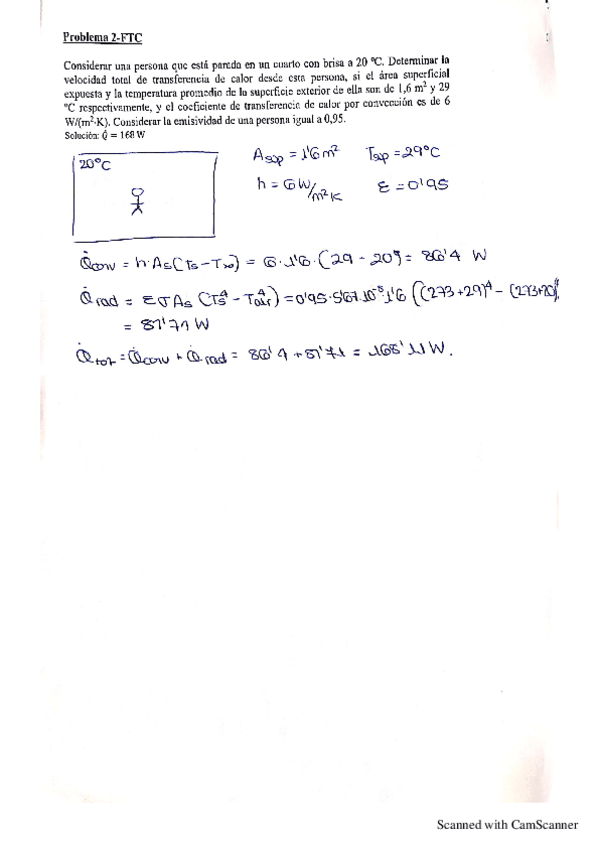 Problema 2-FTC
Considerar una persona que está parada en un cuarto con brisa a 20 ºC. Determinar la
velocidad total de transferencia de calor desde esta persona, si el área superficial
expuesta y la temperatura promedio de la superficie exterior de ella son de 1,6 m² y 29
ºC respectivamente, y el coeficiente de transferencia de calor por convección es de 6
W/(m²·K). Considerar la emisividad de una persona igual a 0,95.
Solución: Q̇ = 168 W
20ºC
Asup = 1'6 m² Tsup = 29ºC
h = 6 W/m²K ε = 0'95
Q̇conv = h·As(Ts-T∞) = 6·1'6·(29-20) = 86'4 W
Q̇rad = εσAs (Ts⁴ - Talr⁴) = 0'95·5'67·10⁻⁸·1'6 ((273+29)⁴ - (273+20)⁴)
= 81'71 W
Q̇tot = Q̇conv + Q̇rad = 86'4 + 81'71 = 168'11 W.
Scanned with CamScanner